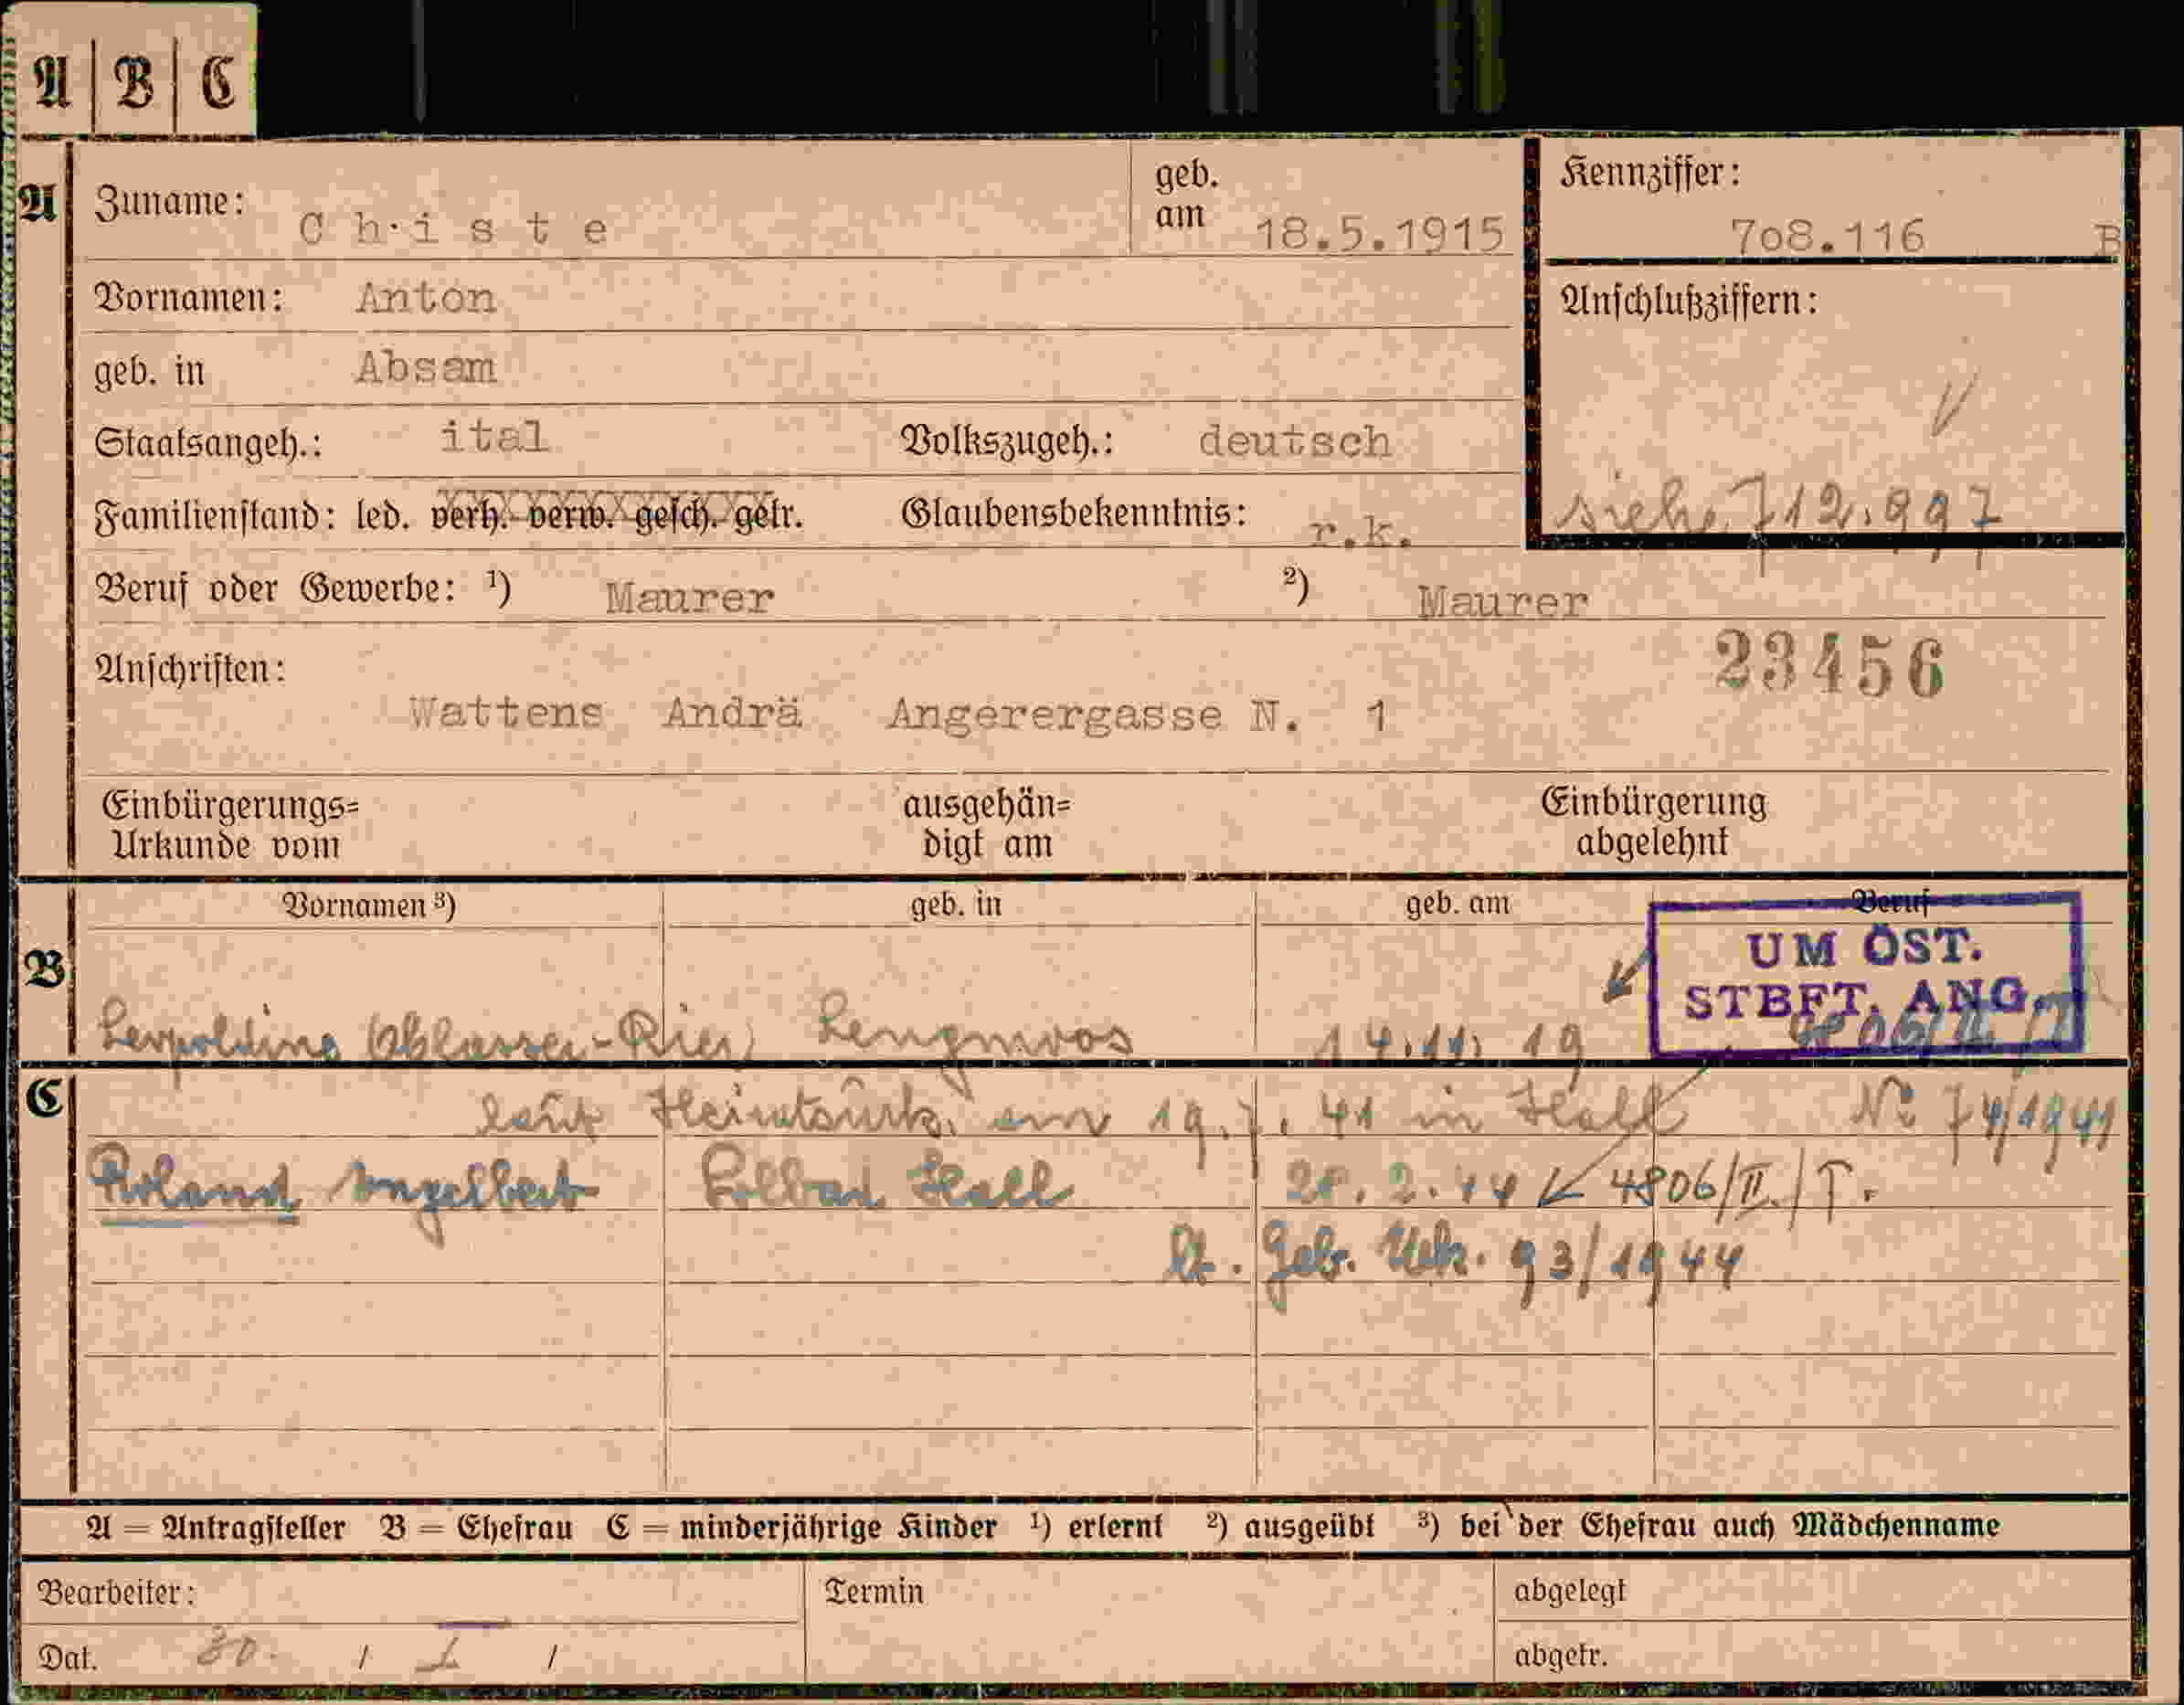 A B C
A
Zuname: Ch·iste
geb. am 18.5.1915
Kennziffer: 7o8.116 B
Vornamen: Anton
Anschlußziffern:
geb. in Absam
Staatsangeh.: ital Volkszugeh.: deutsch
siehe 712.997
Familienstand: led. verh. verw. gesch. getr. Glaubensbekenntnis: r.k.
Beruf oder Gewerbe: ¹) Maurer ²) Maurer
23456
Anschriften:
Wattens Andrä Angerergasse N. 1
Einbürgerungs=
Urkunde vom
ausgehän=
digt am
Einbürgerung
abgelehnt
B
Vornamen ³) geb. in geb. am Beruf
UM ÖST.
STBFT. ANG.
Leopoldina Lengmoos 14.11.19 4806/II/T
C
laut Heiratsurk. am 19.7.41 in Hall Nº 74/1941
Roland Engelbert Solbad Hall 28.2.44 4806/II./T.
lt. Geb. Urk. 93/1944
A = Antragsteller B = Ehefrau C = minderjährige Kinder ¹) erlernt ²) ausgeübt ³) bei der Ehefrau auch Mädchenname
Bearbeiter: Termin abgelegt
Dat. 30. / I / abgetr.